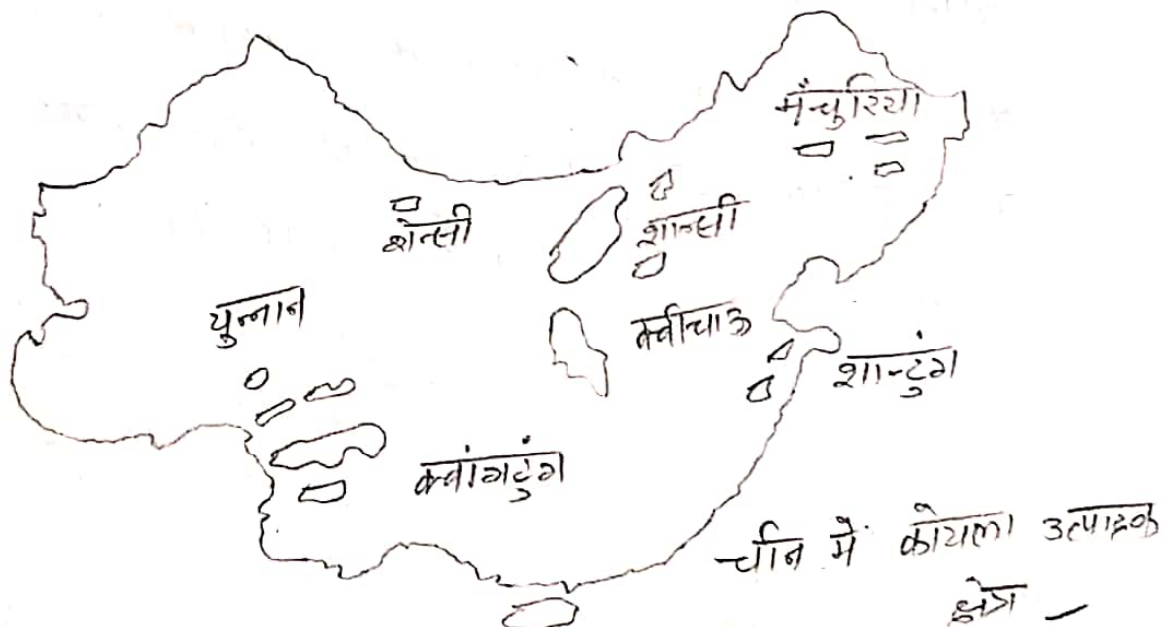 मँचुरिया
शेन्सी
शान्सी
युन्नान
क्वीचाऊ
शान्टुंग
क्वांगटुंग
चीन में कोयला उत्पादक
क्षेत्र –